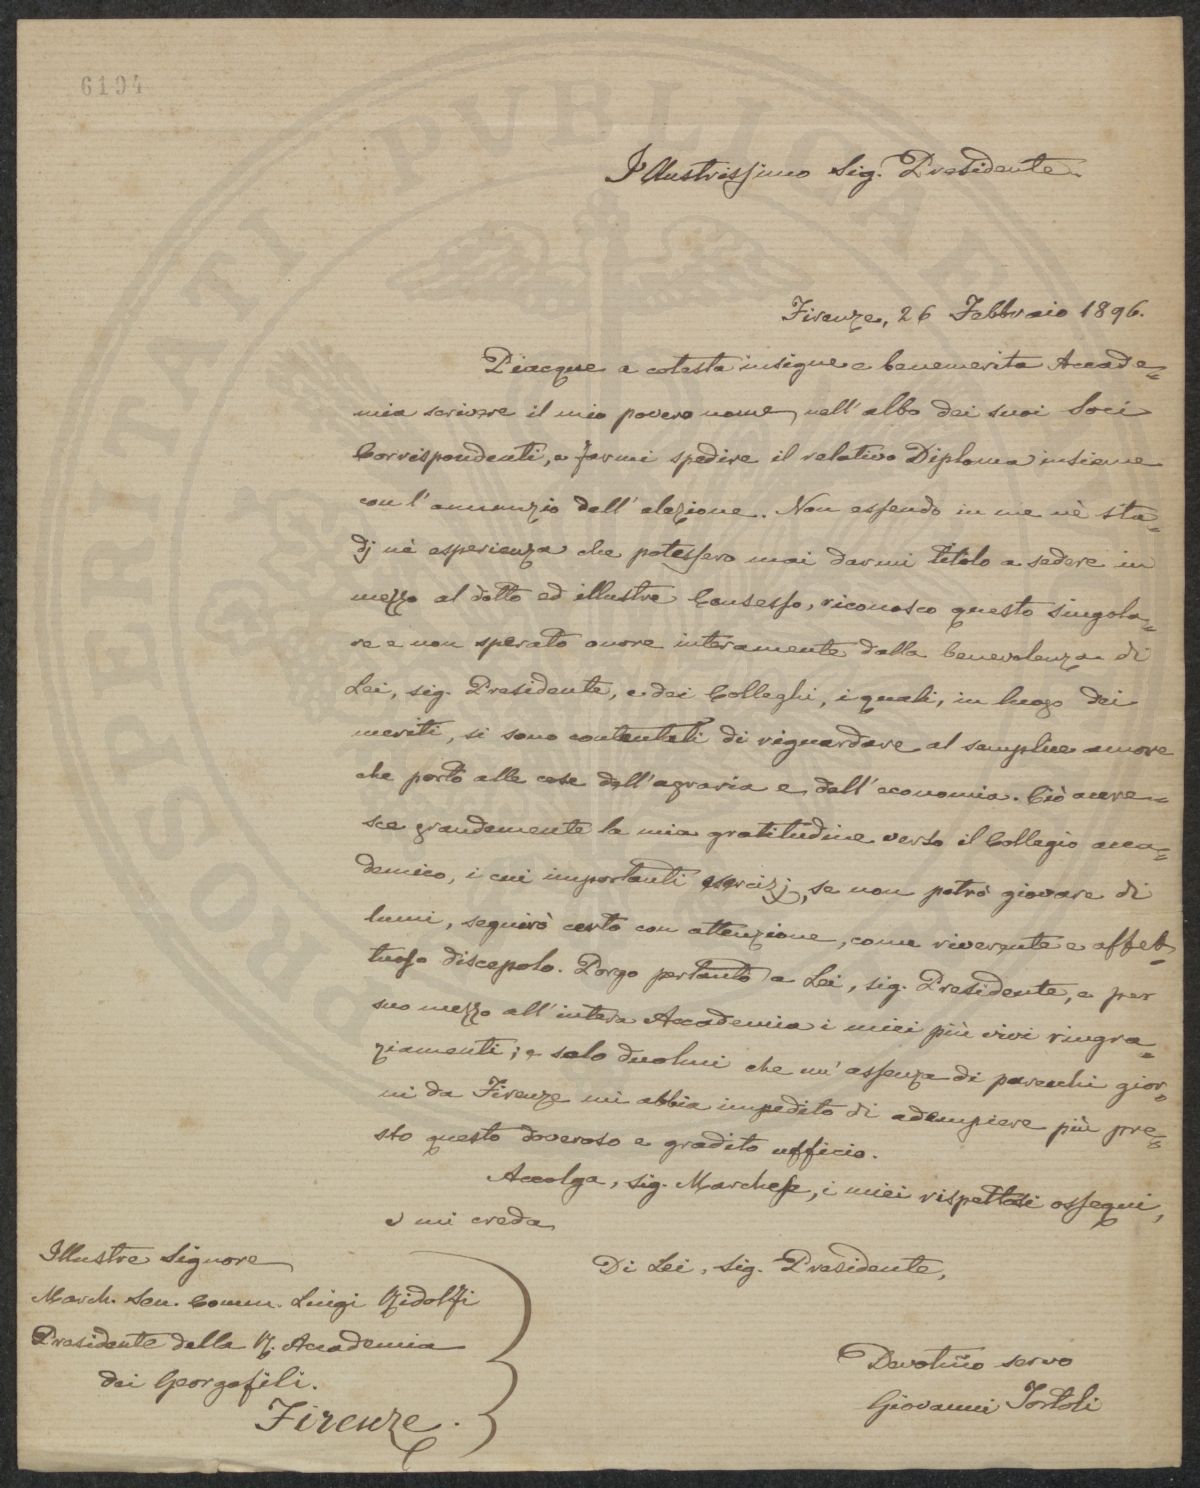 6194
Illustrissimo Sig. Presidente
Firenze, 26 Febbraio 1896.
Piacque a cotesta insigne e benemerita Accade=
mia scrivere il mio povero nome nell'albo dei suoi Soci
Corrispondenti, e farmi spedire il relativo Diploma insieme
con l'annunzio dell'elezione. Non essendo in me nè stu=
dj nè esperienza che potessero mai darmi titolo a sedere in
mezzo al dotto ed illustre Consesso, riconosco questo singola=
re e non sperato onore interamente dalla benevolenza di
Lei, sig. Presidente, e dei Colleghi, i quali, in luogo dei
meriti, si sono contentati di riguardare al semplice amore
che porto alle cose dell'agraria e dell'economia. Ciò accre=
sce grandemente la mia gratitudine verso il Collegio acca=
demico, i cui importanti esercizj, se non potrò giovare di
lumi, seguirò certo con attenzione, come riverente e affet=
tuoso discepolo. Porgo pertanto a Lei, sig. Presidente, e per
suo mezzo all'intera Accademia i miei più vivi ringra=
ziamenti; e solo duolmi che un'assenza di parecchi gior=
ni da Firenze mi abbia impedito di adempiere più pre=
sto questo doveroso e gradito ufficio.
Accolga, sig. Marchese, i miei rispettosi ossequi,
e mi creda
Di Lei, sig. Presidente,
Devotmo servo
Giovanni Tortoli
Illustre Signore
March. Sen. Comm. Luigi Ridolfi
Presidente della R. Accademia
dei Georgofili.
Firenze.
PROSPERITATI PUBLICAE